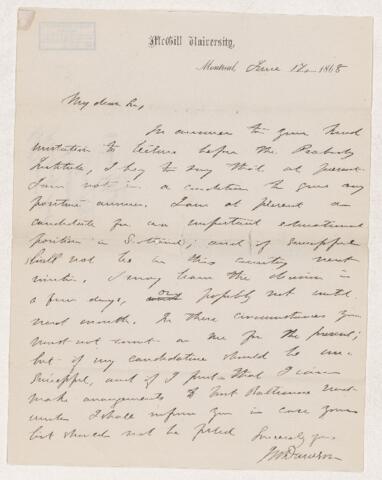 McGill University,
Montreal, June 12 1868
My dear Sir,
In answer to your kind
invitation to lecture before the Peabody
Institute, I beg to say that at present
I am not in a condition to give any
positive answer. I am at present a
candidate for an important educational
position in Scotland; and if successful
shall not be in this country next
winter. I may learn the decision in
a few days, or possibly not until
next month. In these circumstances you
must not count on me for the present;
but if my candidature should be un-
successful, and if I find that I can
make arrangements to visit Baltimore next
winter I shall inform you in case your
list should not be filled
Sincerely yours
JWDawson